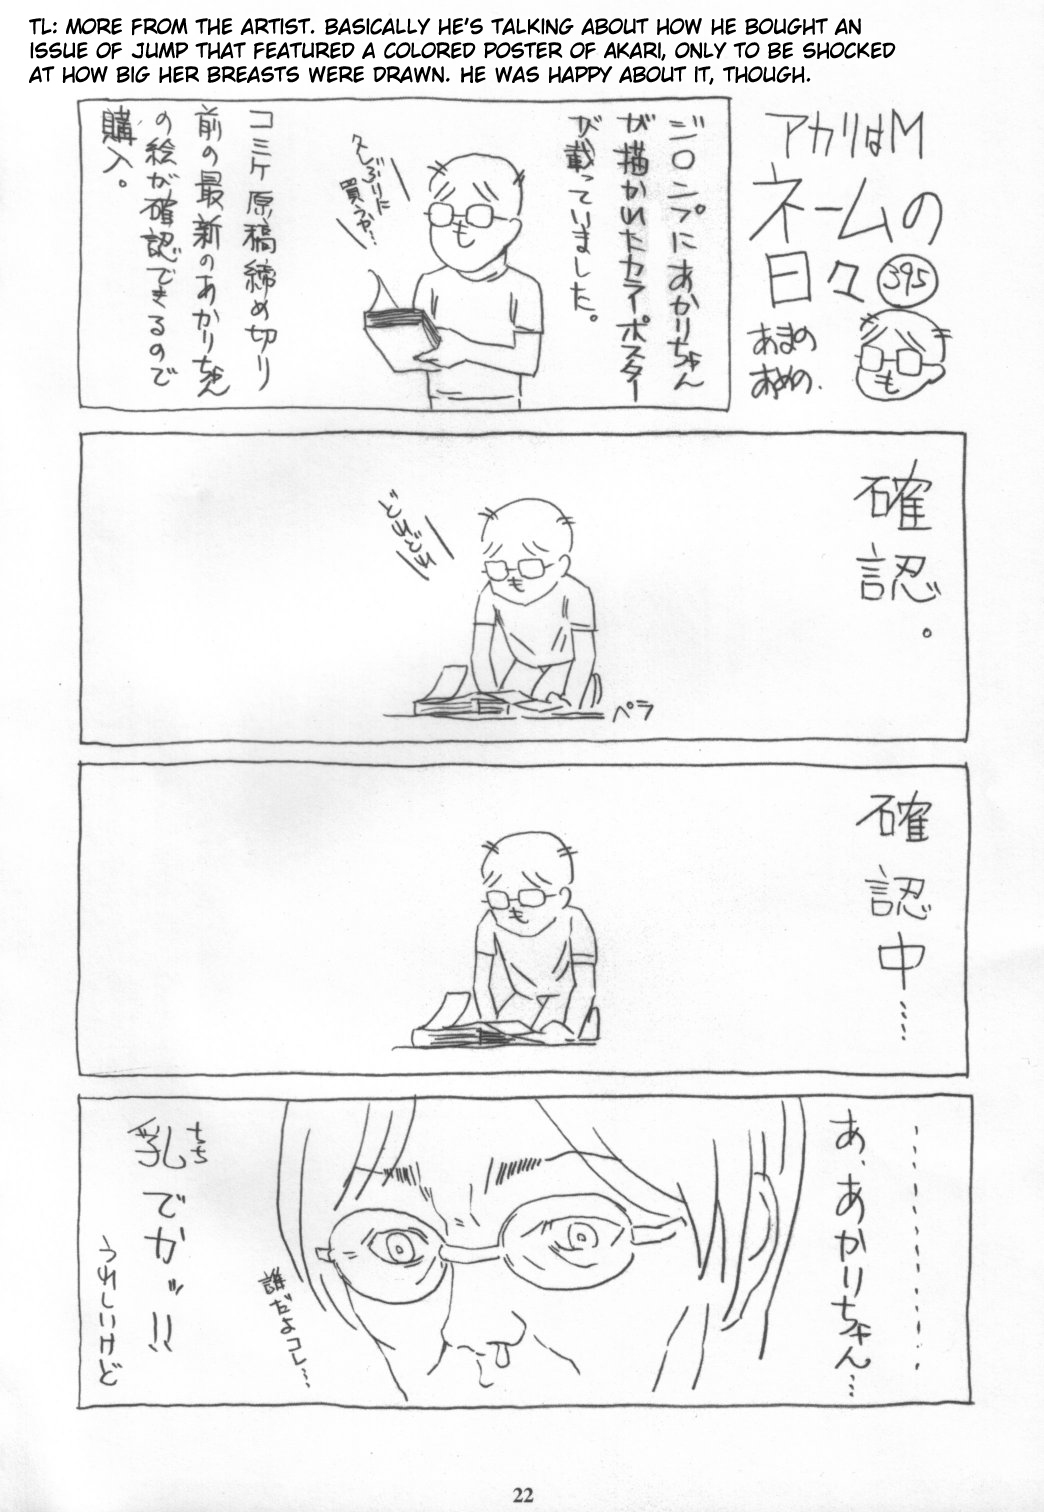 TL: MORE FROM THE ARTIST. BASICALLY HE'S TALKING ABOUT HOW HE BOUGHT AN
ISSUE OF JUMP THAT FEATURED A COLORED POSTER OF AKARI, ONLY TO BE SHOCKED
AT HOW BIG HER BREASTS WERE DRAWN. HE WAS HAPPY ABOUT IT, THOUGH.
アカリはM
ネームの
日々 395
あまの
あめの.
ジ○ンプにあかりちゃん
が描かれたカラーポスター
が載っていました。
久しぶりに
買うか…
コミケ原稿締め切り
前の最新のあかりちゃん
の絵が確認できるので
購入。
確認。
どれどれ
ペラ
確認中……
…………………
あ、あかりちゃん…
誰だよコレ…
乳でかッ!!
ちち
うれしいけど
22